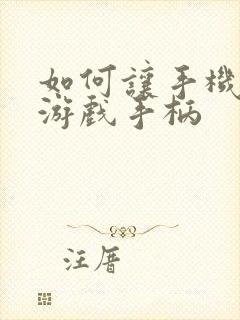 如何讓手機
游戲手柄
汪厝